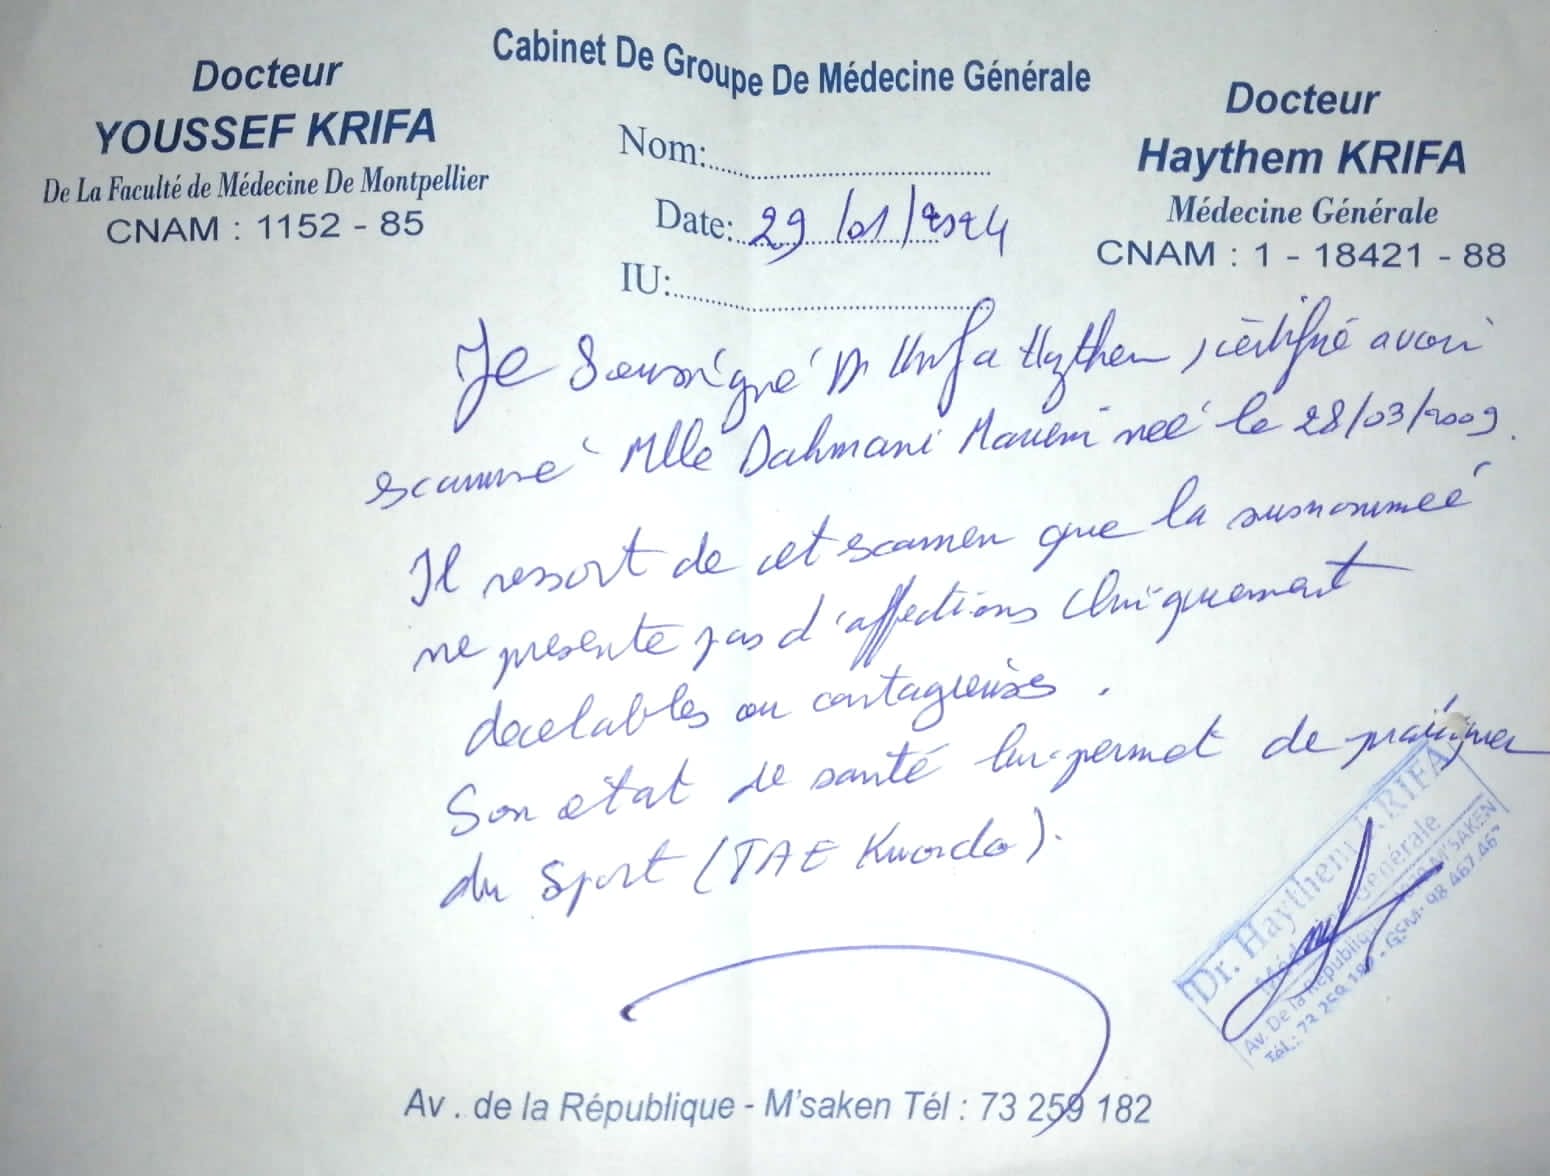 Cabinet De Groupe De Médecine Générale
Docteur
YOUSSEF KRIFA
De La Faculté de Médecine De Montpellier
CNAM : 1152 - 85
Nom:
Date: 29/01/2024
IU:
Docteur
Haythem KRIFA
Médecine Générale
CNAM : 1 - 18421 - 88
Je Soussigné Dr Krifa Haythem, certifié avoir
examiné Mlle Dahmani née le 28/03/2009.
Il ressort de cet examen que la susnommée
ne présente pas d'affections cliniquement
decelables ou contagieuses.
Son état de santé lui permet de pratiquer
du Sport (TAE Kwondo).
Dr. Haythem KRIFA
Médecine Générale
Av. De la République M'SAKEN
Tél.: 73 259 182 - GSM: 98 467 467
Av. de la République - M'saken Tél : 73 259 182